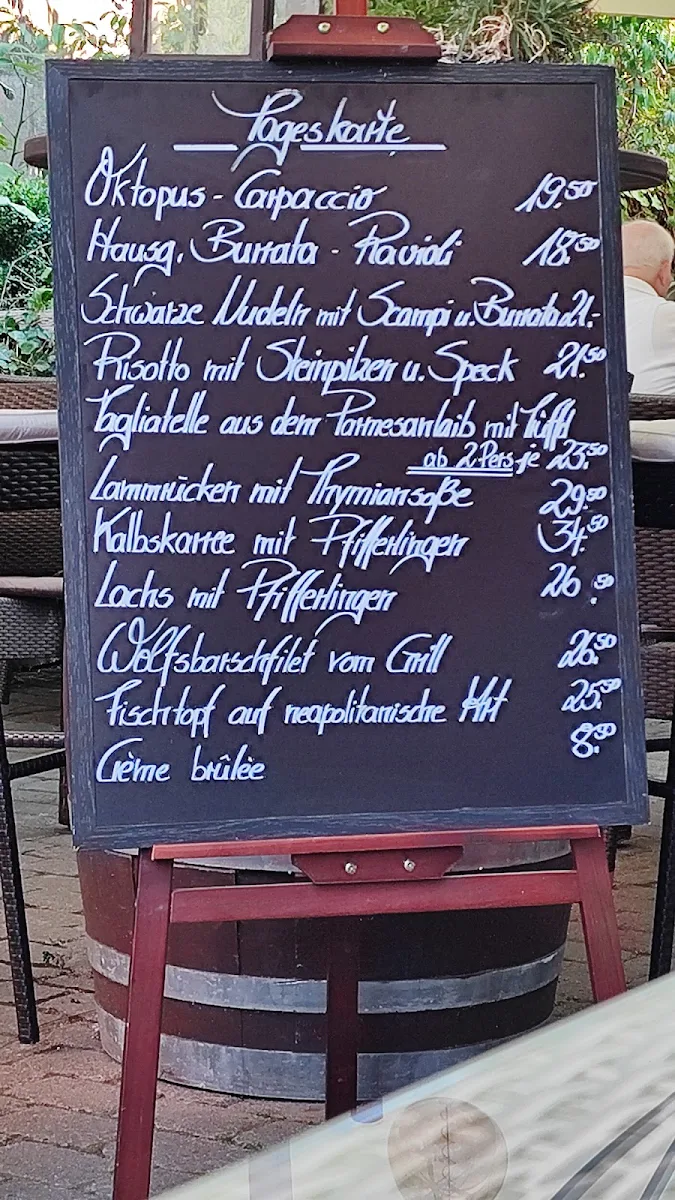 Tageskarte
Oktopus - Carpaccio 19.50
Hausg. Burrata - Ravioli 18.50
Schwarze Nudeln mit Scampi u. Burrata 21.-
Risotto mit Steinpilzen u. Speck 21.50
Tagliatelle aus dem Parmesanlaib mit Trüffel
ab 2 Pers. je 23.50
Lammrücken mit Thymiansoße 29.50
Kalbskarree mit Pfifferlingen 34.50
Lachs mit Pfifferlingen 26.50
Wolfsbarschfilet vom Grill 26.50
Fischtopf auf neapolitanische Art 25.50
Crème brûlèe 8.50